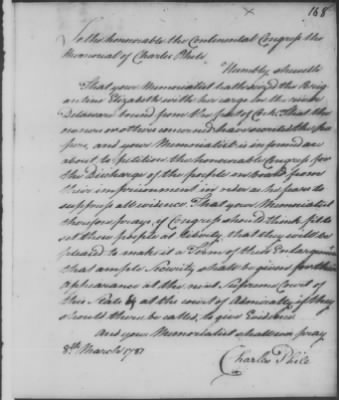 168
To the honourable the Continental Congress the
Memorial of Charles Phile
Humbly sheweth
That your Memorialist hath seized the Brig
antine Elizabeth with her cargo for the river
Delaware bound from the port of Cork. That the
owners or others concerned have
and your Memorialist is informed are
about to petition the honourable Congress for
the discharge of the people on board from
their imprisonment in order as he fears to
suppress all evidence. That your Memorialist
therefore prays, if Congress should think fit to
set these people at liberty that they will be
pleased to make it a Term of their Enlargement
that ample Security shall be given for their
appearance at the next Supreme Court of
this State & at the court of Admiralty if they
should there be called, to give Evidence
And your Memorialist shall ever pray
8th March 1781
Charles Phile